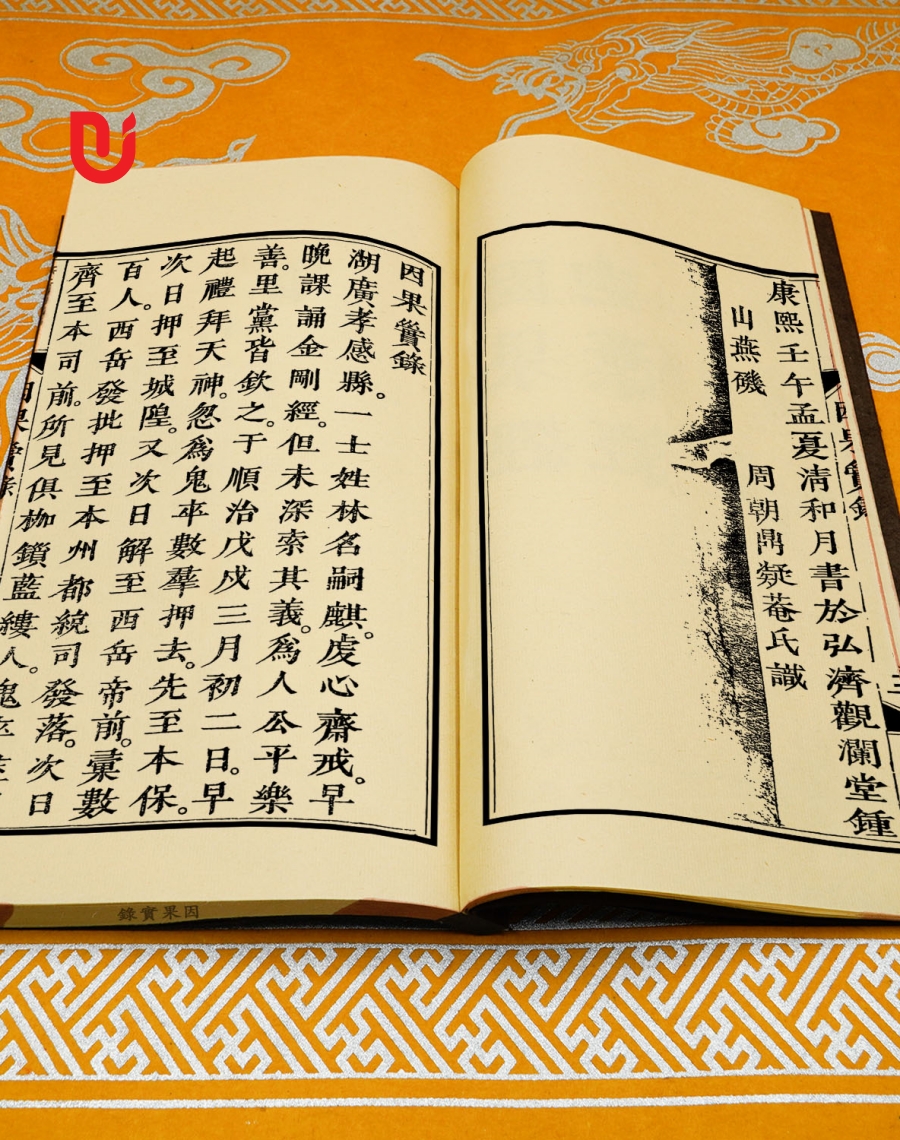 因果實錄
三
康熙壬午孟夏清和月書於弘濟觀瀾堂鍾
山燕磯 周朝鼎凝菴氏識
因果實錄
湖廣孝感縣。一士姓林名嗣麒。虔心齋戒。早
晚課誦金剛經。但未深索其義。爲人公平樂
善。里黨皆欽之。于順治戊戌三月初二日。早
起禮拜天神。忽爲鬼卒數羣押去。先至本保。
次日押至城隍。又次日解至西岳帝前。彙數
百人。西岳發批押至本州都統司發落。次日
齊至本司前。所見俱枷鎖藍縷人。鬼卒
因果實錄
因果實錄